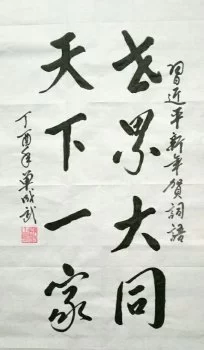 習近平新年賀詞語
世界大同
天下一家
丁酉年單成武